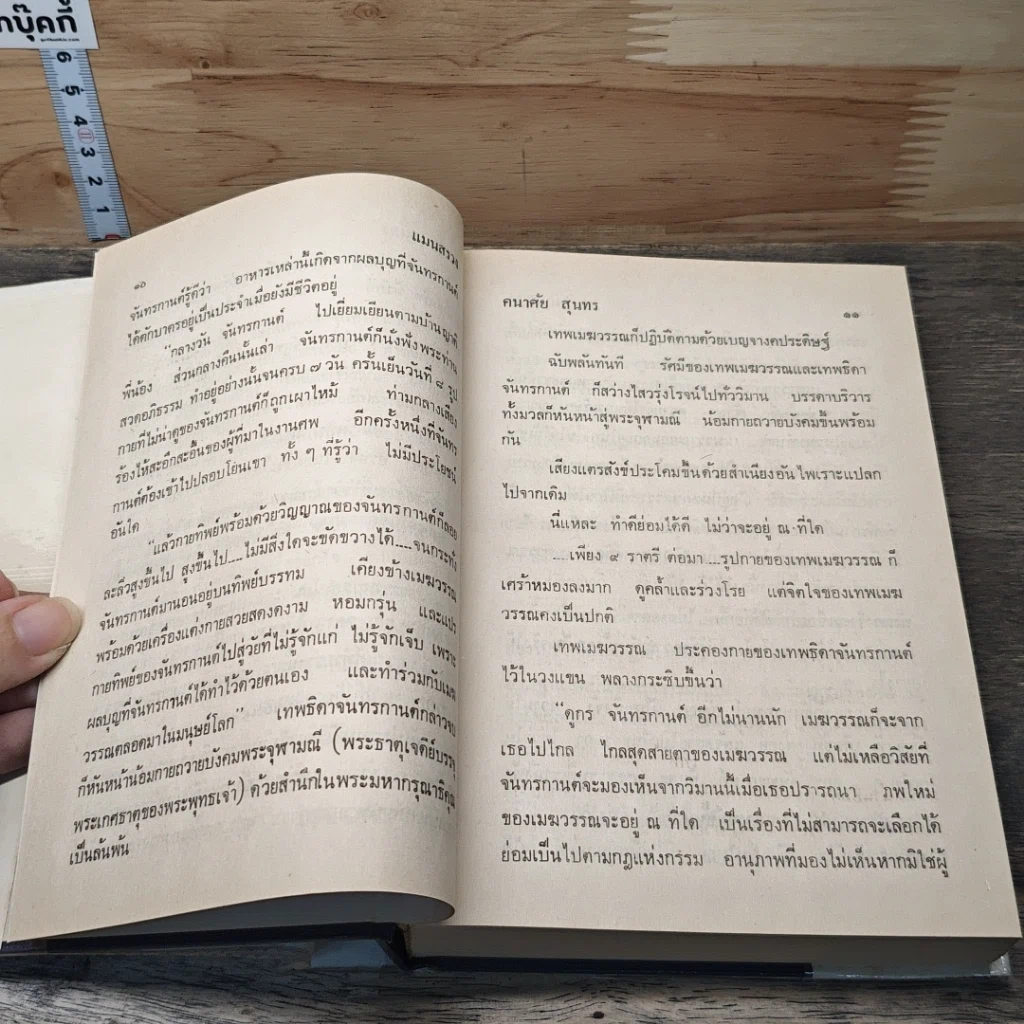 กบุ๊คกี้
6
5
4
3
2
1
๑๐ แมนสรวง
จันทรกานต์รู้ดีว่า อาหารเหล่านี้เกิดจากผลบุญที่จันทรกานต์
ได้ตักบาตรอยู่เป็นประจำเมื่อยังมีชีวิตอยู่
"กลางวัน จันทรกานต์ ไปเยี่ยมเยียนตามบ้านญาติ
พี่น้อง ส่วนกลางคืนนั้นเล่า จันทรกานต์ก็นั่งฟังพระท่าน
สวดอภิธรรม ทำอยู่อย่างนั้นจนครบ ๗ วัน ครั้นเย็นวันที่ ๘ รูป
กายที่ไม่น่าดูของจันทรกานต์ก็ถูกเผาไหม้ ท่ามกลางเสียง
ร้องไห้สะอึกสะอื้นของผู้ที่มาในงานศพ อีกครั้งหนึ่งที่จันทร
กานต์ต้องเข้าไปปลอบโยนเขา ทั้ง ๆ ที่รู้ว่า ไม่มีประโยชน์
อันใด
"แล้วกายทิพย์พร้อมด้วยวิญญาณของจันทรกานต์ก็ลอย
ละลิ่วสูงขึ้นไป สูงขึ้นไป....ไม่มีสิ่งใดจะขัดขวางได้....จนกระทั่ง
จันทรกานต์มานอนอยู่บนทิพย์บรรทม เคียงข้างเมฆวรรณ
พร้อมด้วยเครื่องแต่งกายสวยสดงดงาม หอมกรุ่น และแปร
กายทิพย์ของจันทรกานต์ไปสู่วัยที่ไม่รู้จักแก่ ไม่รู้จักเจ็บ เพราะ
ผลบุญที่จันทรกานต์ได้ทำไว้ด้วยตนเอง และทำร่วมกับเมฆ
วรรณตลอดมาในมนุษย์โลก" เทพธิดาจันทรกานต์กล่าวจบ
ก็หันหน้าน้อมกายถวายบังคมพระจุฬามณี (พระธาตุเจดีย์บรรจุ
พระเกศธาตุของพระพุทธเจ้า) ด้วยสำนึกในพระมหากรุณาธิคุณ
เป็นล้นพ้น
คนาศัย สุนทร ๑๑
เทพเมฆวรรณก็ปฏิบัติตามด้วยเบญจางคประดิษฐ์
ฉับพลันทันที รัศมีของเทพเมฆวรรณและเทพธิดา
จันทรกานต์ ก็สว่างไสวรุ่งโรจน์ไปทั่ววิมาน บรรดาบริวาร
ทั้งมวลก็หันหน้าสู่พระจุฬามณี น้อมกายถวายบังคมขึ้นพร้อม
กัน
เสียงแตรสังข์ประโคมขึ้นด้วยสำเนียงอันไพเราะแปลก
ไปจากเดิม
นี่แหละ ทำดีย่อมได้ดี ไม่ว่าจะอยู่ ณ ที่ใด
....เพียง ๙ ราตรี ต่อมา ...รูปกายของเทพเมฆวรรณ ก็
เศร้าหมองลงมาก ดูคล้ำและร่วงโรย แต่จิตใจของเทพเมฆ
วรรณคงเป็นปกติ
เทพเมฆวรรณ ประคองกายของเทพธิดาจันทรกานต์
ไว้ในวงแขน พลางกระซิบขึ้นว่า
"ดูกร จันทรกานต์ อีกไม่นานนัก เมฆวรรณก็จะจาก
เธอไปไกล ไกลสุดสายตาของเมฆวรรณ แต่ไม่เหลือวิสัยที่
จันทรกานต์จะมองเห็นจากวิมานนี้เมื่อเธอปรารถนา ภพใหม่
ของเมฆวรรณจะอยู่ ณ ที่ใด เป็นเรื่องที่ไม่สามารถจะเลือกได้
ย่อมเป็นไปตามกฎแห่งกรรม อานุภาพที่มองไม่เห็นหากมิใช่ผู้